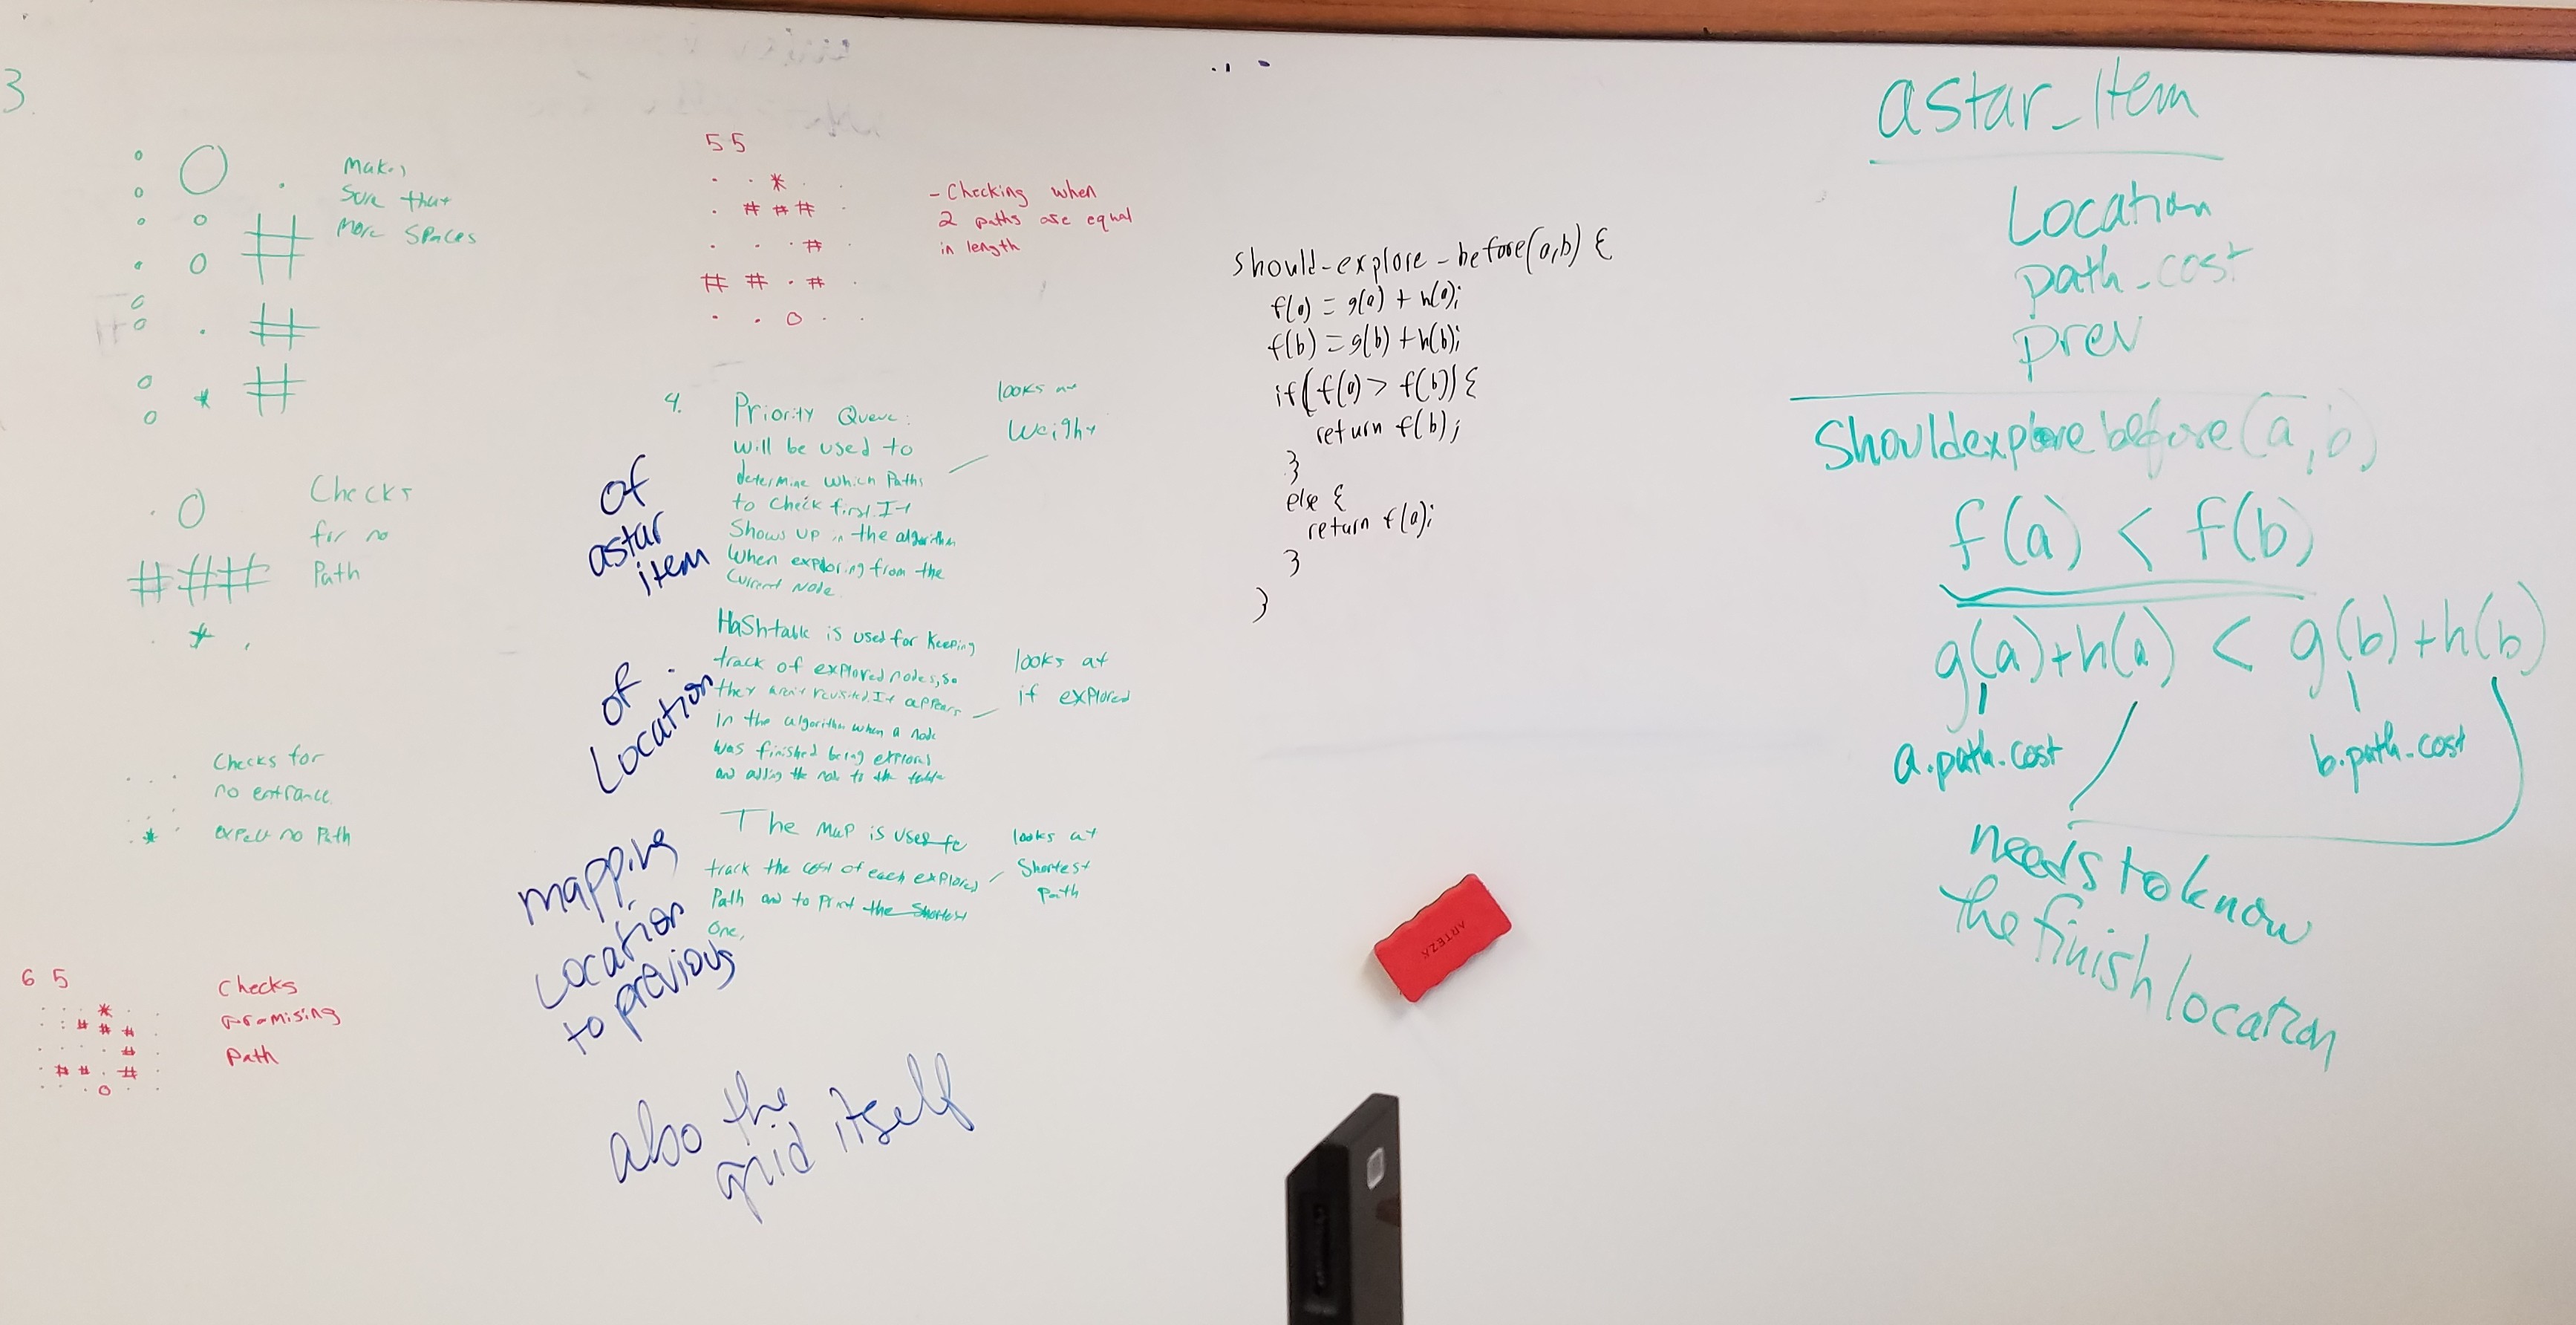 3.
makes
sure that
more spaces
Checks
for no
Path
Checks for
no entrance
expect no Path
6 5
. . . * . .
. : # # # .
. . . . # .
. # # . # .
. . . o . .
Checks
Promising
Path
5 5
. . * . .
. # # # .
. . . # .
# # . # .
. . o . .
- Checking when
2 paths are equal
in length
4. Priority Queue:
will be used to
determine which Paths
to check first. It
Shows up in the algorithm
when exploring from the
current node.
looks at
weight
of
astar
item
Hashtable is used for keeping
track of explored nodes, so
they aren't revisited. It appears
in the algorithm when a node
was finished being explored
and adding the node to the table
looks at
if explored
of
Location
The map is used to
track the cost of each explored
Path and to print the shortest
one,
looks at
Shortest
path
mapping
Location
to previous
also the
grid itself
should-explore-before(a,b) {
f(a) = g(a) + h(a);
f(b) = g(b) + h(b);
if(f(a) > f(b)) {
return f(b);
}
else {
return f(a);
}
}
ARTEZA
astar_Item
Location
path_cost
prev
Shouldexplore before(a, b)
f(a) < f(b)
g(a)+h(a) < g(b)+h(b)
a.path.cost
b.path.cost
needs to know
the finish location